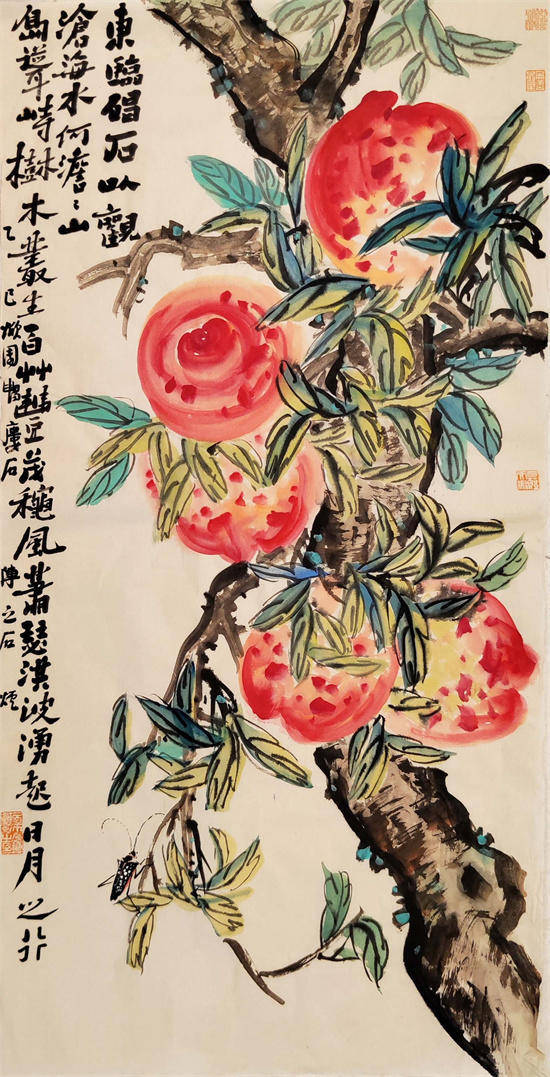 東臨碣石以觀
滄海水何澹〻山
島聳峙樹木叢生百艸豐茂穐風蕭瑟洪波湧起日月之行
乙巳 石 陳之石